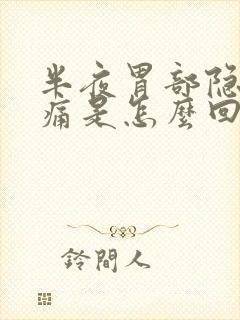 半夜胃部隐
痛是怎麼回
鈴間人